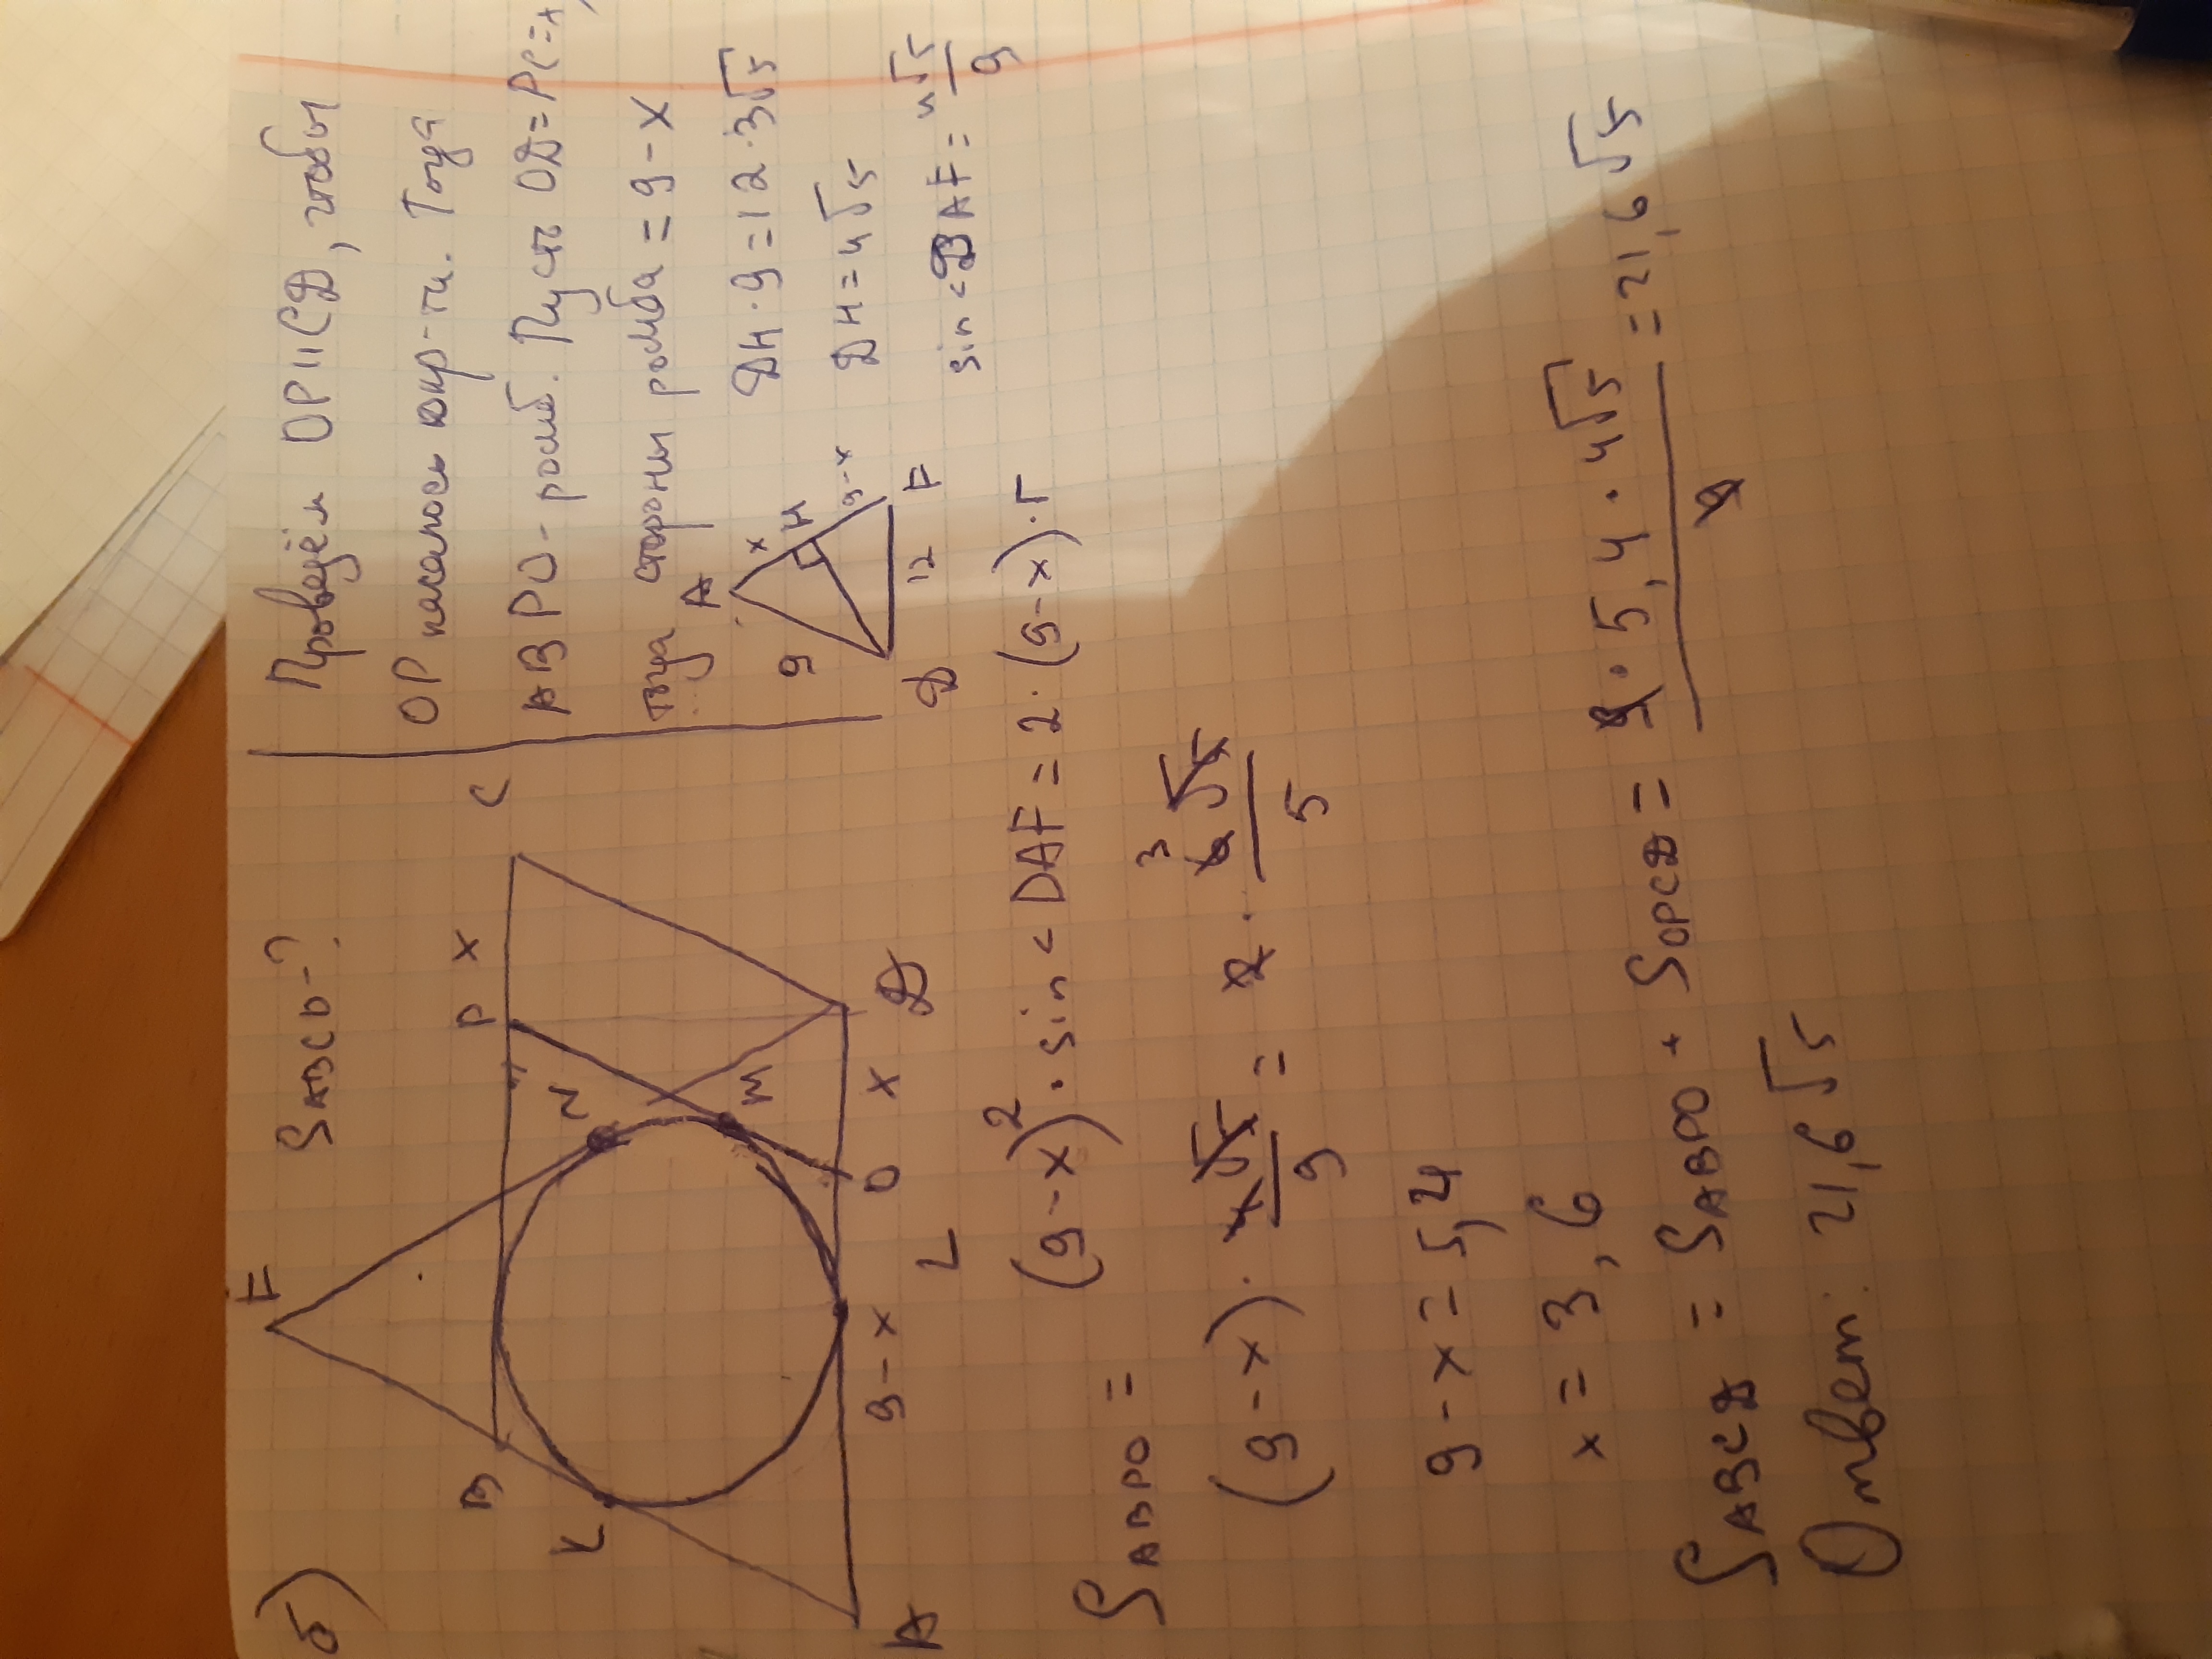 б) SABCD-?
F
B
K
N
P
X
C
M
A
9-x
L
O
x
D
Проведём OP||CD, чтобы
OP касалось окр-ти. Тогда
ABPO-ромб. Пусть OD=PC=x,
тогда стороны ромба = 9-x
A
x
9
H
9-x
D
12
F
DH·9=12·3√5
DH=4√5
sin<DAF=4√5/9
SABPO = (9-x)²·sin<DAF=2·(9-x)·r
(9-x)·4√5/9 = 2·6√5/5
3
9-x=5,4
x=3,6
SABCD = SABPO + SOPCD = 9·5,4·4√5/9 =21,6√5
Ответ: 21,6√5